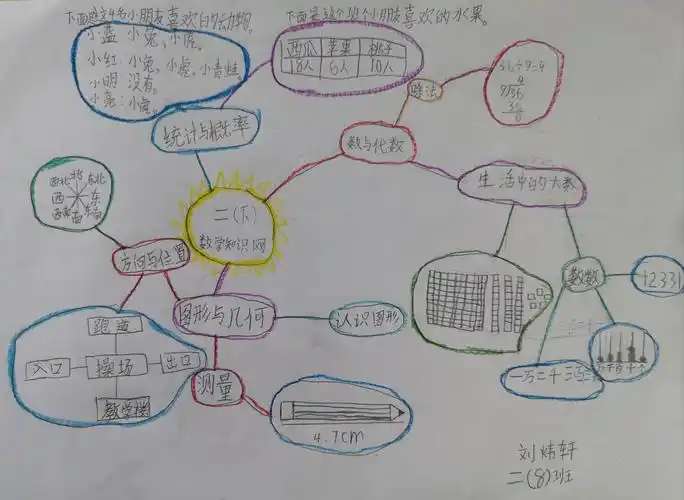 下面是4名小朋友喜欢的动物。
小蓝:小兔,小虎。
小红:小兔,小虎,小青蛙。
小明:没有。
小亮:小虎。
下面是这个班个小朋友喜欢的水果。
西瓜 苹果 桃子
18人 6人 10人
除法
36÷9=4
4
9 36
36
0
统计与概率
数与代数
生活中的大数
西北 北 东北
西 东
西南 南 东南
二(下)
数学知识网
方向与位置
数数
12331
图形与几何
认识图形
跑道
入口 操场 出口
教学楼
测量
万千百十个
4.7cm
刘炜轩
二(8)班